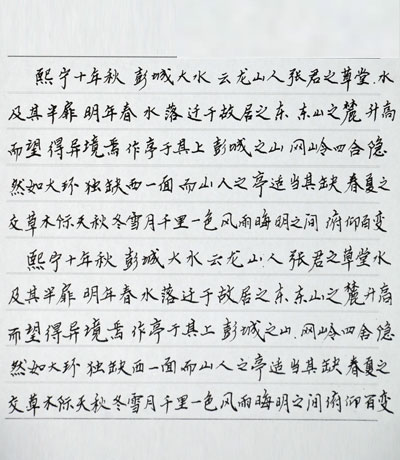 熙宁十年秋 彭城大水 云龙山人张君之草堂.水
及其半扉 明年春 水落 迁于故居之东 东山之麓 升高
而望 得异境焉 作亭于其上 彭城之山 冈岭四合 隐
然如大环 独缺西一面 而山人之亭适当其缺 春夏之
交 草木际天 秋冬雪月 千里一色 风雨晦明之间 俯仰百变
熙宁十年秋 彭城大水 云龙山人张君之草堂 水
及其半扉 明年春 水落 迁于故居之东 东山之麓 升高
而望 得异境焉 作亭于其上 彭城之山 冈岭四合 隐
然如大环 独缺西一面 而山人之亭适当其缺 春夏之
交 草木际天 秋冬雪月 千里一色 风雨晦明之间 俯仰百变